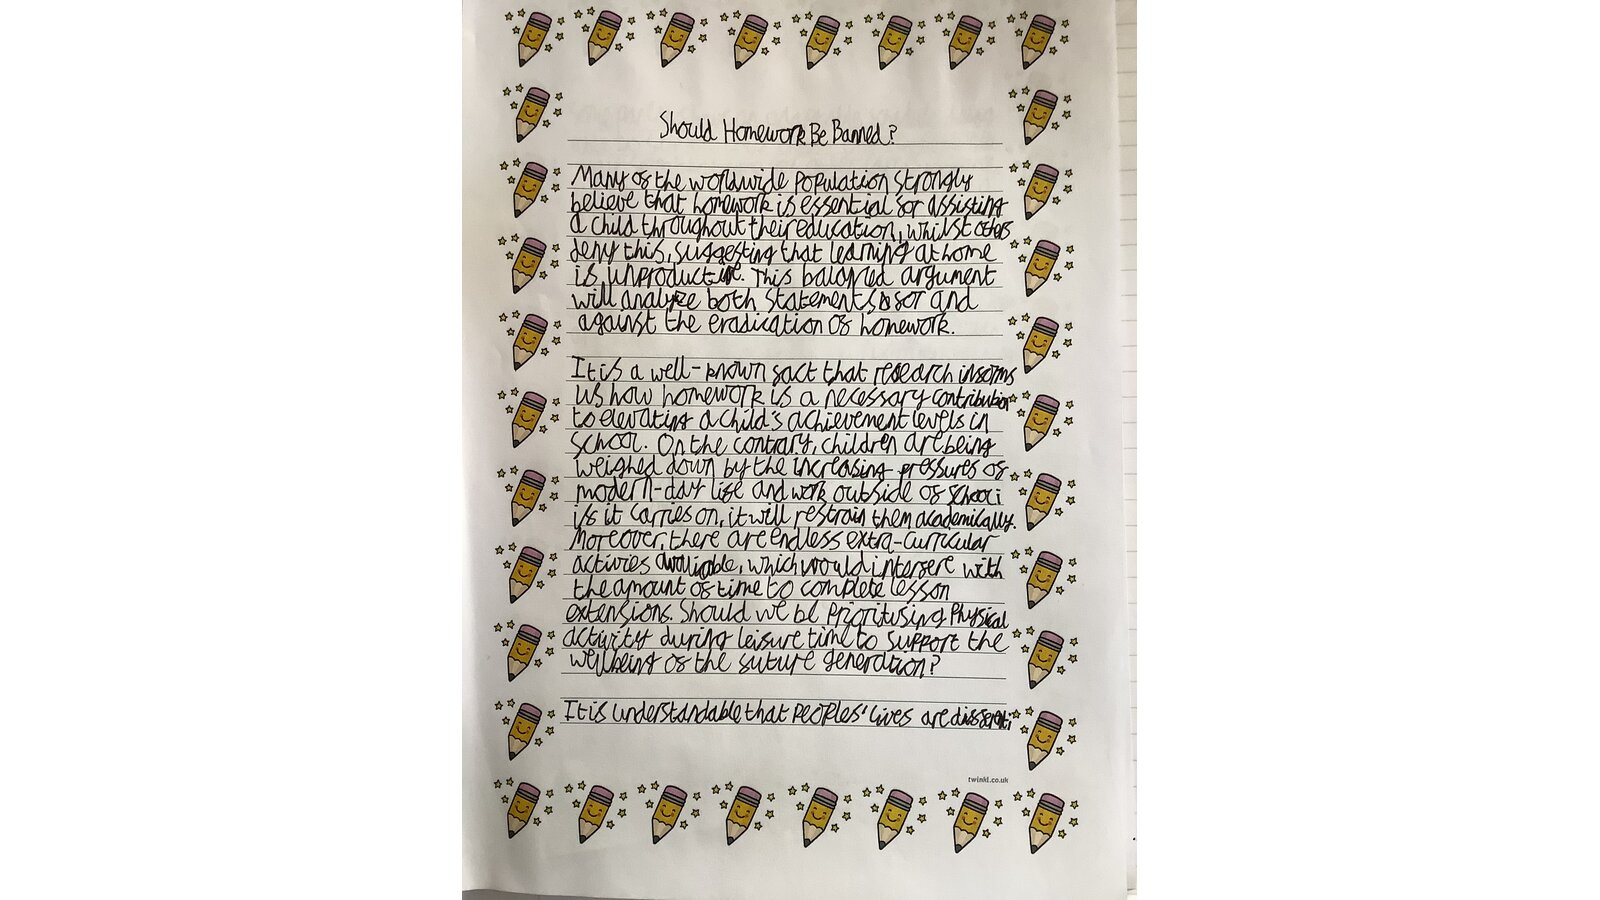 Should Homework Be Banned?
Many of the worldwide population strongly
believe that homework is essential for assisting
a child throughout their education, whilst others
deny this, suggesting that learning at home
is unproductive. This balanced argument
will analyze both statements for and
against the eradication of homework.
It is a well-known fact that research informs
us how homework is a necessary contribution
to elevating a child's achievement levels in
school. On the contrary, children are being
weighed down by the increasing pressures of
modern-day life and work outside of school;
if it carries on, it will restrain them academically.
Moreover, there are endless extra-curricular
activies available, which would interfere with
the amount of time to complete lesson
extensions. Should we be prioritising physical
activity during leisure time to support the
wellbeing of the future generation?
It is understandable that peoples' lives are different;
twinkl.co.uk